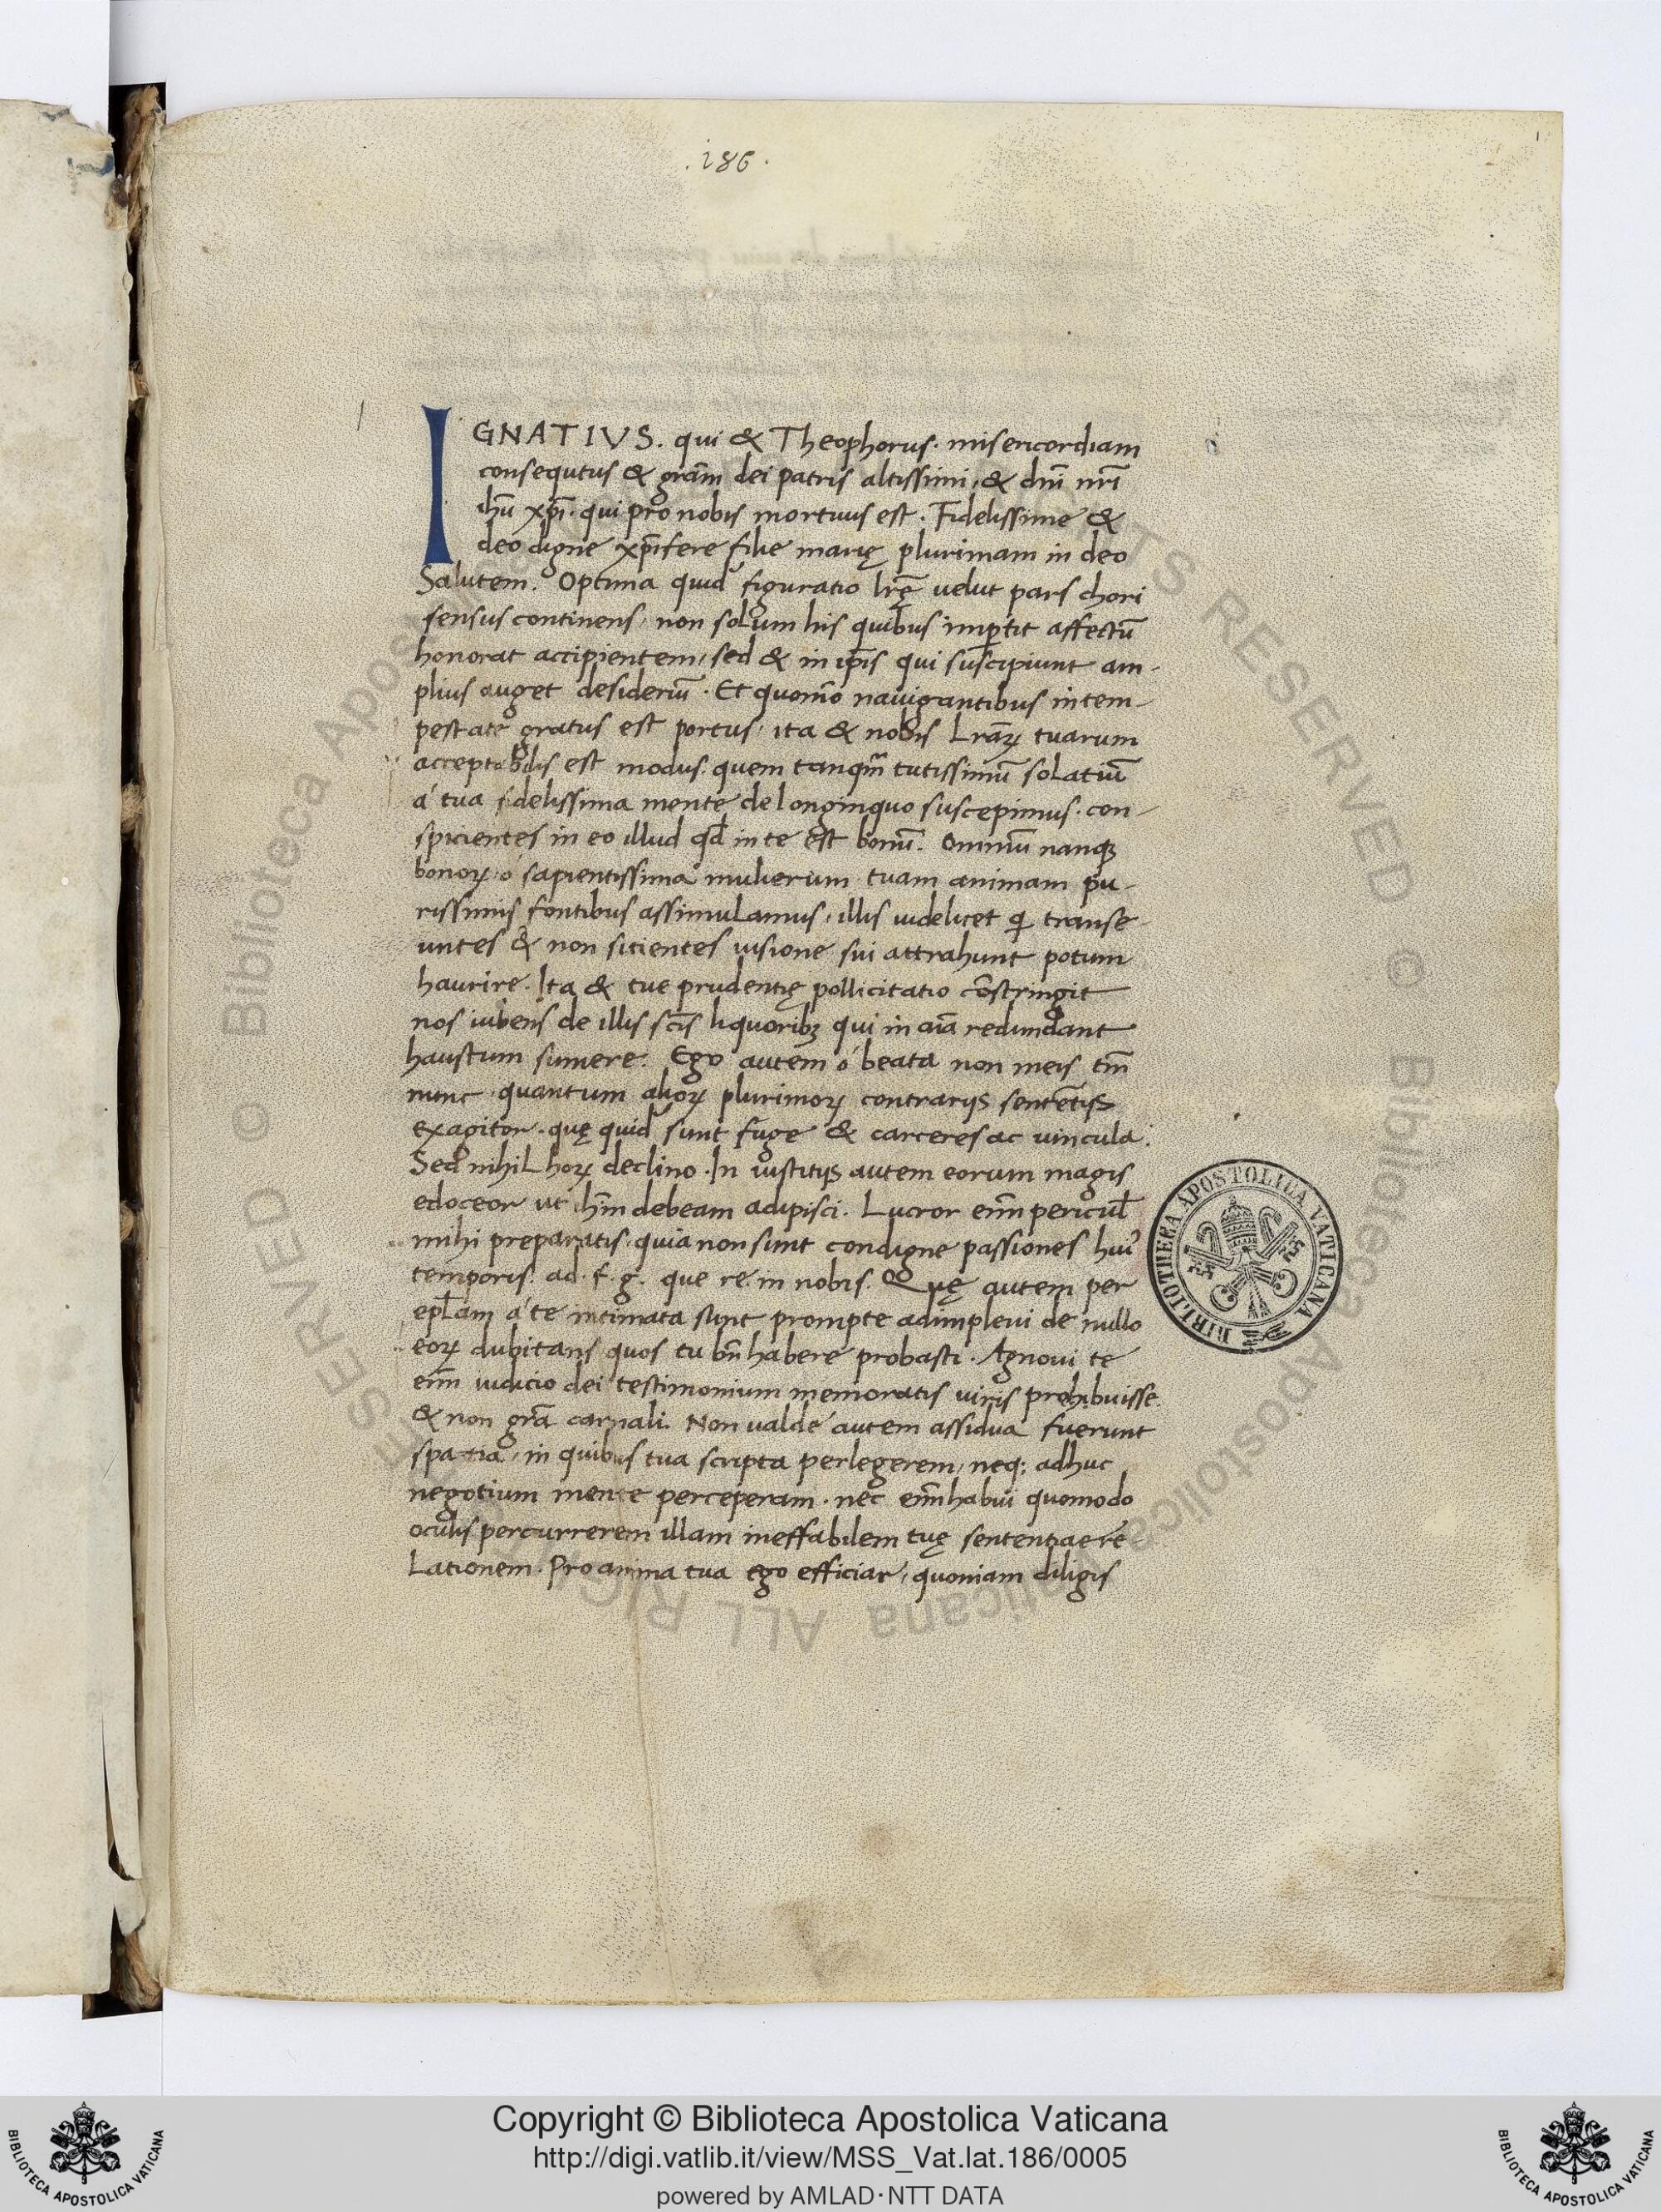 .186.
1
IGNATIVS. qui & Theophorus. misericordiam
consequtus & grãm dei patris altissimi, & dñi nrĩ
ihũ xpĩ. qui pro nobis mortuus est. Fidelissime &
deo digne xp̃ifere filie marię plurimam in deo
Salutem. Optima quid᷒ figuratio lrę̃ uelut pars chori
sensus continens, non solum his quibus imp̱tit affectũ
honorat accipientem, sed & in ip̃is qui suscipiunt am-
plius auget desideriũ. Et quom̃o nauigantibus in tem-
pestate gratus est portus, ita & nobis Lrãꝝ tuarum
acceptabilis est modus. quem tanqm̃ tutissimũ solatiũ
á tua fidelissima mente de longinquo suscepimus. con-
spicientes in eo illud qd̃ in te est bonũ. Omniũ nanqꝫ
bonoꝝ ó sapientissima mulierum tuam animam pu-
rissimis fontibus assimulamus, illis uidelicet q̃ transe-
untes & non sitientes uisione sui attrahunt potum
haurire. Ita & tue prudentię pollicitatio cõstringit
nos iubens de illis scĩs liquoribꝫ qui in aĩa redundant
haustum sumere. Ego autem ó beata non meis tm̃
nunc quantum alioꝝ plurimoꝝ contrarijs sentẽtijs
exagitor. quę quid᷒ sunt fuge & carceres ac uincula.
Sed nihil hoꝝ declino. In iustitijs autem eorum magis
edoceor ut ihm̃ debeam adipisci. Lucror enĩ pericul̃
mihi preparatis, quia non sunt condigne passiones hui᷒
temporis. ad. f. g. que re. in nobis. Quę autem per
epl̃am á te intimata sunt prompte adimpleui de nullo
eoꝝ dubitans quos tu bñ habere probasti. Agnoui te
enĩ iudicio dei testimonium memoratis uiris prohibuisse.
& non grã carnali. Non ualde autem assidua fuerunt
spatia, in quibus tua scripta perlegerem, neq; adhuc
negotium mente perceperam. nec enĩ habui quomodo
oculis percurrerem illam ineffabilem tuę sententiae re
Lationem. Pro anima tua ego efficiar, quoniam diligis
BIBLIOTHECA APOSTOLICA VATICANA
© Biblioteca Apostolica Vaticana ALL RIGHTS RESERVED
Copyright © Biblioteca Apostolica Vaticana
http://digi.vatlib.it/view/MSS_Vat.lat.186/0005
powered by AMLAD·NTT DATA
BIBLIOTECA APOSTOLICA VATICANA
BIBLIOTECA APOSTOLICA VATICANA